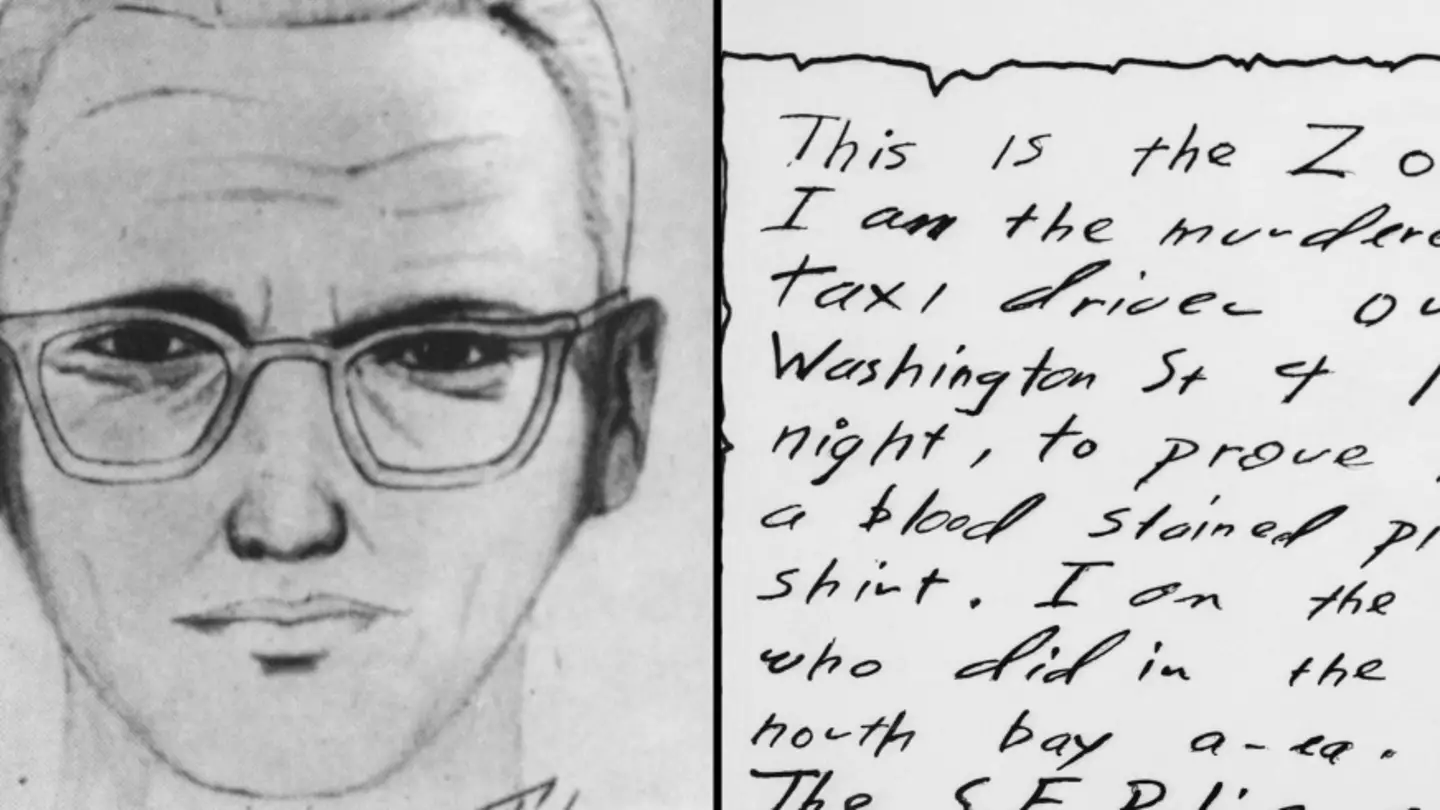 This is the Zo
I am the murdere
taxi driver ov
Washington St 4
night, to prove
a blood stained pi
shirt. I am the
who did in the
north bay area.
The S.F. Police